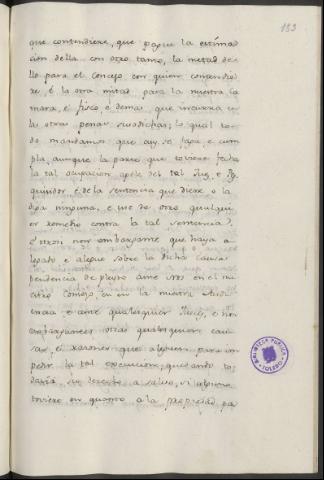 153
que contendiere, que pague la estima
cion della con otro tanto, la metad de
llo para el concejo con quien contendie
re, é la otra mitad para la nuestra Ca
mara, é fisco, é demas que incurra en
las otras penas susodichas; lo qual to
do mandamos que asy se faga, e cum
pla, aunque la parte que toviere fecha
la tal ocupacion apele del tal Juez, e Pes
quisidor é de la sentencia que diere o la
diga ninguna, é use de otro qualqui
er remedio contra la tal sentencia.
E otrosi non embargante que haya a
legado e alegue sobre la dicha causa
pendencia de pleyto ante nos en el nu
estro Consejo, ou en la nuestra Audi
encia e ante qualesquier Jueces, e non
embargantes otras qualesquier cau
sas, é razones que aleguen para im
pedir la tal execucion; quedando to
davia su derecho a salvo, si alguno
toviere en quanto a la propiedad pa
BIBLIOTECA PUBLICA
TOLEDO